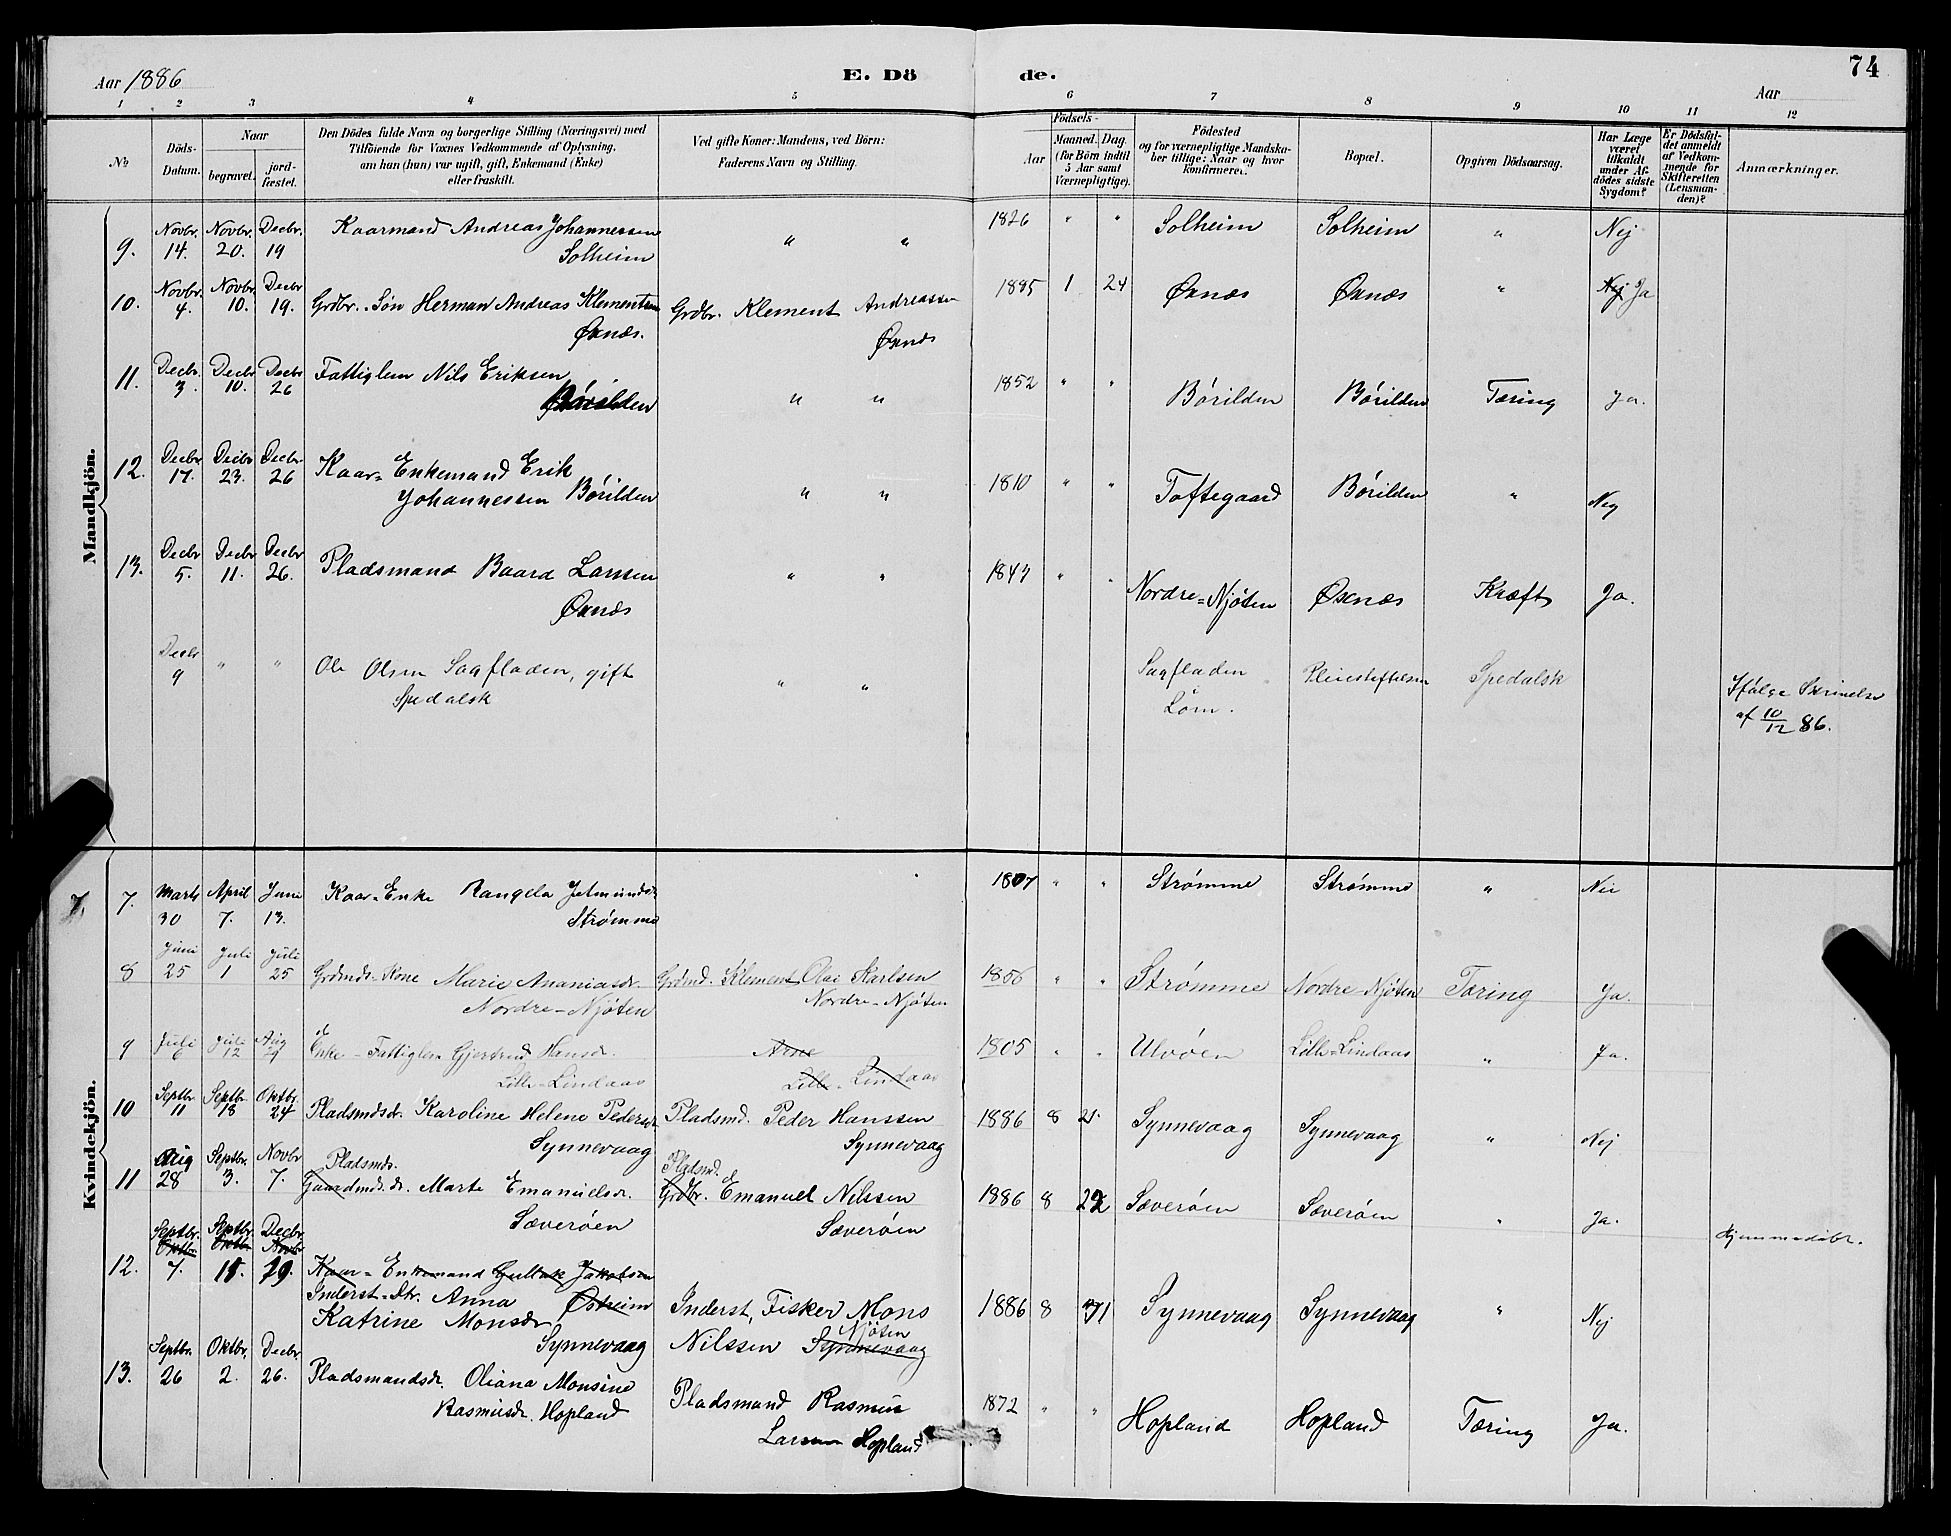 Aar 1886
E. Dö
de.
74
Aar
1 2 3 4 5 6 7 8 9 10 11 12
No
Döds-
Datum.
Naar
begravet.
jord-
fæstet.
Den Dödes fulde Navn og borgerlige Stilling (Næringsvei) med
Tilföiende for Voxnes Vedkommende af Oplysning,
om han (hun) var ugift, gift, Enkemand (Enke)
eller fraskilt.
Ved gifte Koner: Mandens, ved Börn:
Faderens Navn og Stilling.
Födsels-
Aar
Maaned. Dag
(for Börn indtil
5 Aar samt
Værnepligtige).
Födested
og for værnepligtige Mandska-
ber tillige: Naar og hvor
konfirmeret.
Bopæl.
Opgiven Dödsaarsag.
Har Læge
været
tilkaldt
under Af-
dödes sidste
Sygdom?
Er Dödsfal-
det anmeldt
af Vedkom-
mende for
Skifteretten
(Lensman-
den)?
Anmærkninger.
Mandkjön.
9. Novbr. 14. Novbr. 20. Decbr. 19 Kaarmand Andreas Johannessen
Solheim " " 1826 " " Solheim Solheim " Nej
10. Novbr. 4. Novbr. 10. Decbr 19. Grdbr. Søn Herman Andreas Klementsen
Øxnæs. Grdbr. Klement Andreassen
Øxnæs 1885 1 24 Øxnæs Øxnæs " Nej Ja
11. Decbr. 3. Decbr 10. Decbr 26 Fattiglem Nils Eriksen
Børilden " " 1852 " " Børilden Børilden Tæring Ja.
12. Decbr 17. Decbr 23. Decbr 26 Kaar-Enkemand Erik
Johannessen Børilden " " 1810 " " Toftegaard Børilden " Nej
13. Decbr 5. Decbr 11. Decbr 26. Pladsmand Baard Larsen
Øxnæs " " 1847 " " Nordre-Njøten Øxnæs Kræft Ja.
Decbr 9 " " Ole Olsen Sagfladen, gift
Spedalsk " " Sagfladen
Pleiestiftelsen Spedalsk Ifølge Skrivelse
af 10/12 86.
Kvindekjön.
7. 7. Marts 30 April 7. Juni 13. Kaar-Enke Rangela Jetmundsdr.
Strømme 1807 " " Strømme Strømme " Nei
8 Juni 25 Juli 1 Juli 25 Grdmds-Kone Marie Ananiasdr.
Nordre-Njøten Grdmd. Klement Olai Karlsen
Nordre-Njøten 1856 " " Strømme Nordre-Njøten Tæring Ja.
9 Juli 6 Juli 12 Aug 29 Enke-Fattiglem Gjertrud Hansdr.
Lille-Lindaas Arne
Lille-Lindaas 1805 " " Ulvøen Lille-Lindaas " Ja.
10 Septbr. 11 Septbr. 18 Oktbr. 24 Pladsmdsdr. Karoline Helene Pedersdr
Synnevaag Pladsmd. Peder Hanssen
Synnevaag 1886 8 21. Synnevaag Synnevaag " Nej
11 Aug 28 Septbr. 3. Novbr 7. Pladsmds.
Gaardmds.dr. Marte Emanuelsdr.
Sæverøen Pladsmd.
Grdbr. Emanuel Nilssen
Sæverøen 1886 8 22 Sæverøen Sæverøen " Ja. Hjemmedøbt.
12. Septbr. Oktbr. 7. Septbr. Oktbr. 18. Decbr. Novbr 19. Kaar-Enkemand Gullak Jakobsen
Østheim
Inderst-Dtr. Anna
Katrine Monsdr
Synnevaag Inderst, Fisker Mons
Nilssen Synnevaag Njøten 1886 8 31 Synnevaag Synnevaag " Nej
13. Septbr. 26 Oktbr. 2. Decbr. 26. Pladsmandsdr. Oliana Monsine
Rasmusdr. Hopland Pladsmand Rasmus
Larsen Hopland 1872 " " Hopland Hopland Tæring Ja.